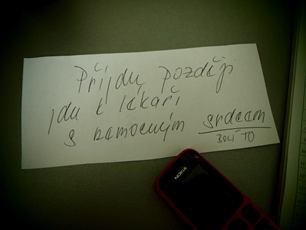 Přijdu později
jdu k lékaři
s nemocným srdcem
bolí TO
NOKIA